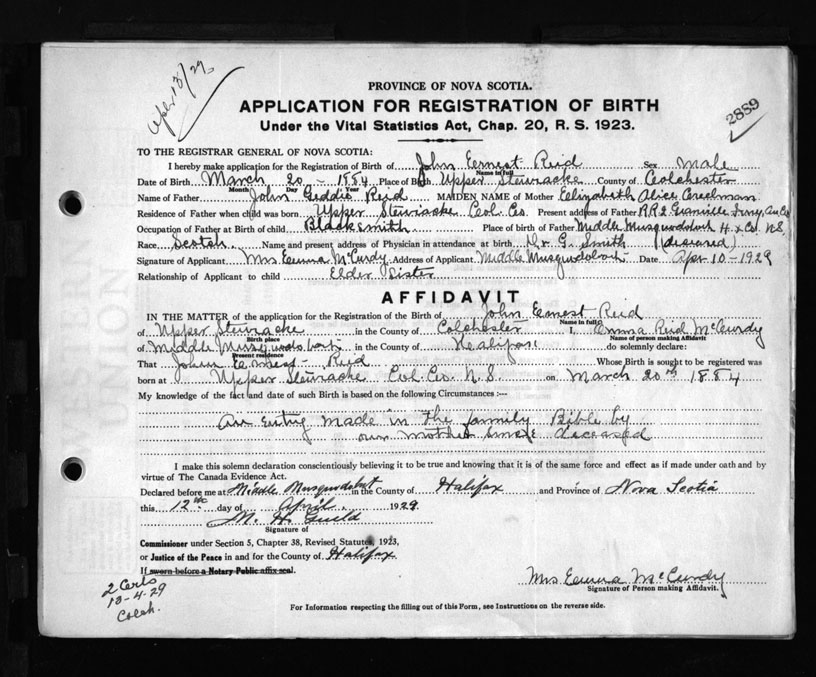 Aper 13/29
PROVINCE OF NOVA SCOTIA.
2889
APPLICATION FOR REGISTRATION OF BIRTH
Under the Vital Statistics Act, Chap. 20, R. S. 1923.
TO THE REGISTRAR GENERAL OF NOVA SCOTIA:
I hereby make application for the Registration of Birth of John Ernest Reid Sex Male
Name in full
Date of Birth March 20 - 1884 Place of Birth Upper Stewiacke County of Colchester
Month Day Year
Name of Father John Geddie Reid MAIDEN NAME of Mother Elizabeth Alice Creelman
Residence of Father when child was born Upper Stewiacke Col. Co. Present address of Father R.R 2
Occupation of Father at Birth of child Blacksmith Place of birth of Father Middle Musquodoboit Hx Co. N.S.
Race Scotch Name and present address of Physician in attendance at birth Dr G. Smith (deceased)
Signature of Applicant Mrs Emma McCurdy Address of Applicant Middle Musquodoboit Date Apr 10 - 1929
Relationship of Applicant to child Elder Sister
AFFIDAVIT
IN THE MATTER of the application for the Registration of the Birth of John Ernest Reid
Name in full
of Upper Stewiacke in the County of Colchester I, Emma Reid McCurdy
Birth place Name of person making Affidavit
of Middle Musquodoboit in the County of Halifax do solemnly declare:
Present residence
That John Ernest Reid Whose Birth is sought to be registered was
born at Upper Stewiacke Col. Co. N.S. on March 20th 1884
My knowledge of the fact and date of such Birth is based on the following Circumstances :—
An entry made in the family Bible by
our mother since deceased
I make this solemn declaration conscientiously believing it to be true and knowing that it is of the same force and effect as if made under oath and by
virtue of The Canada Evidence Act.
Declared before me at Middle Musquodoboit in the County of Halifax and Province of Nova Scotia
this 12th day of April 1929
M. H. Guild
Signature of
Commissioner under Section 5, Chapter 38, Revised Statutes, 1923,
or Justice of the Peace in and for the County of Halifax
If sworn before a Notary Public affix seal.
Mrs Emma McCurdy
Signature of Person making Affidavit.
2 Certs
13-4-29
Colch.
For Information respecting the filling out of this Form, see Instructions on the reverse side.